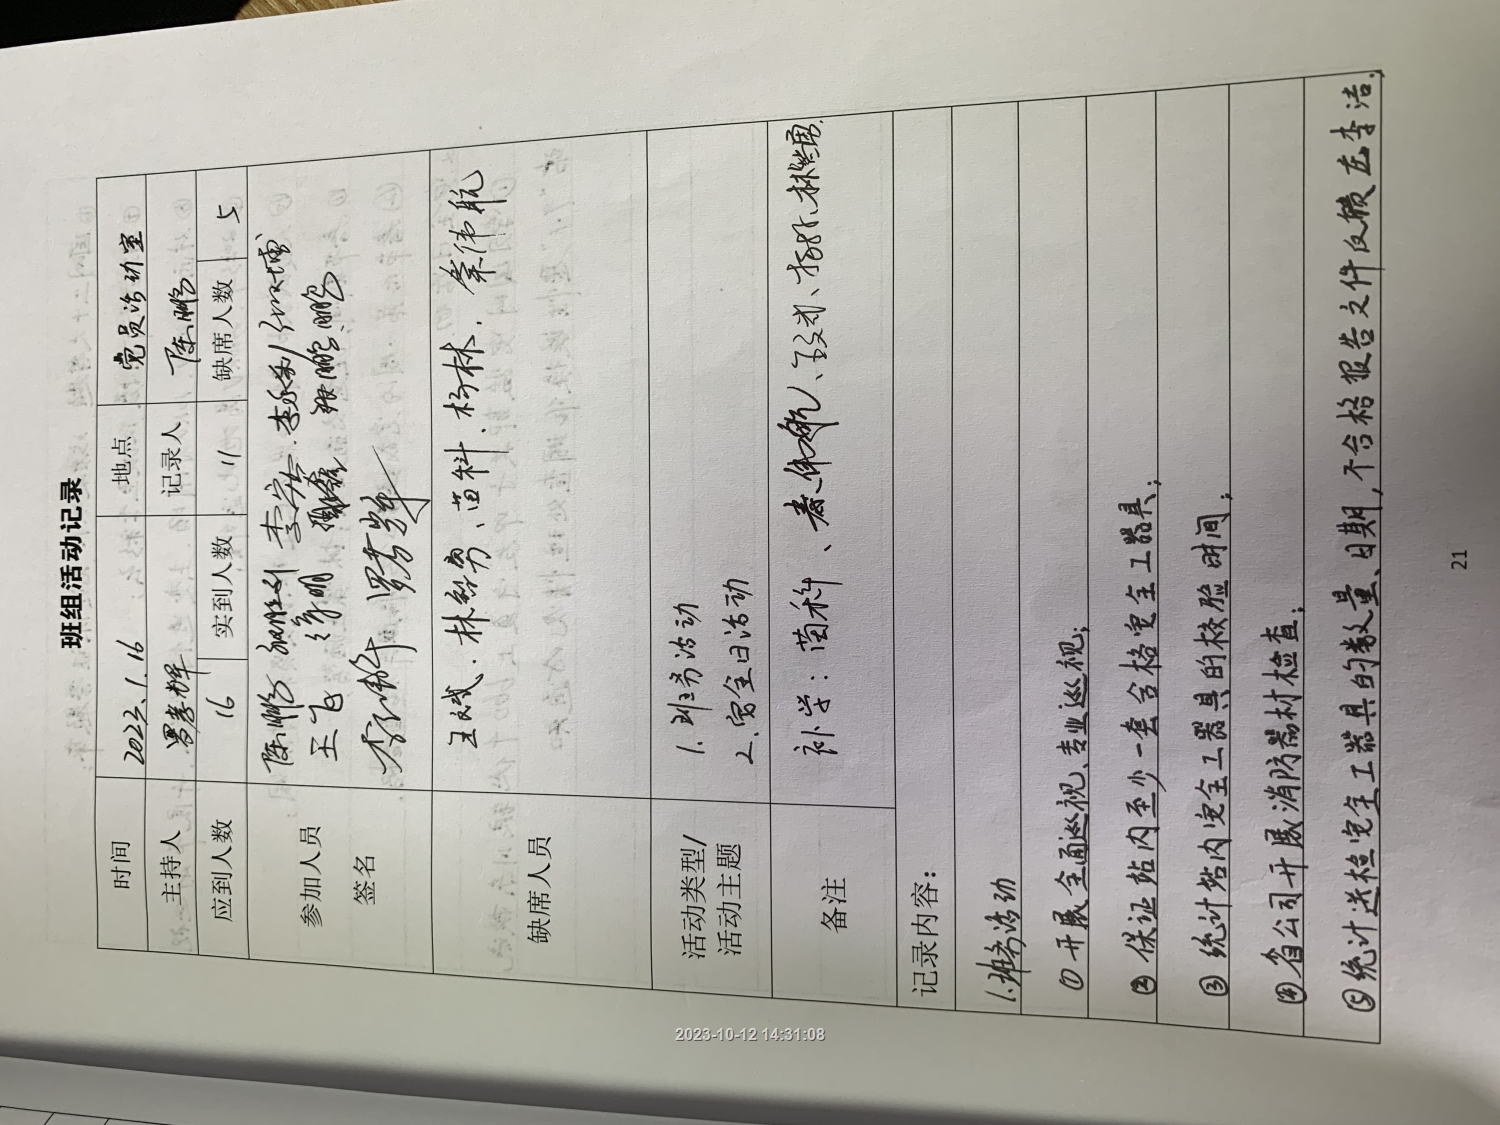 班组活动记录
时间 2023.1.16 地点 党员活动室
主持人 罗孝辉 记录人 陈鹏
应到人数 16 实到人数 11 缺席人数 5
参加人员 陈鹏 李宏 李永利
签名 王飞 徐明 张鹏鹏
罗孝辉
缺席人员 王斌、林, 苗科、杨林、秦伟航
活动类型/ 1. 班务活动
活动主题 2. 安全日活动
备注 补学: 苗科、秦伟航、王斌、杨林、林
记录内容:
1.班务活动
① 开展全面巡视、专业巡视;
② 保证站内至少一套合格安全工器具;
③ 统计站内安全工器具的校验时间;
④ 省公司开展消防器材检查;
⑤ 统计送检安全工器具的数量、日期,不合格报告文件反馈至李洁.
21
2023-10-12 14:31:08